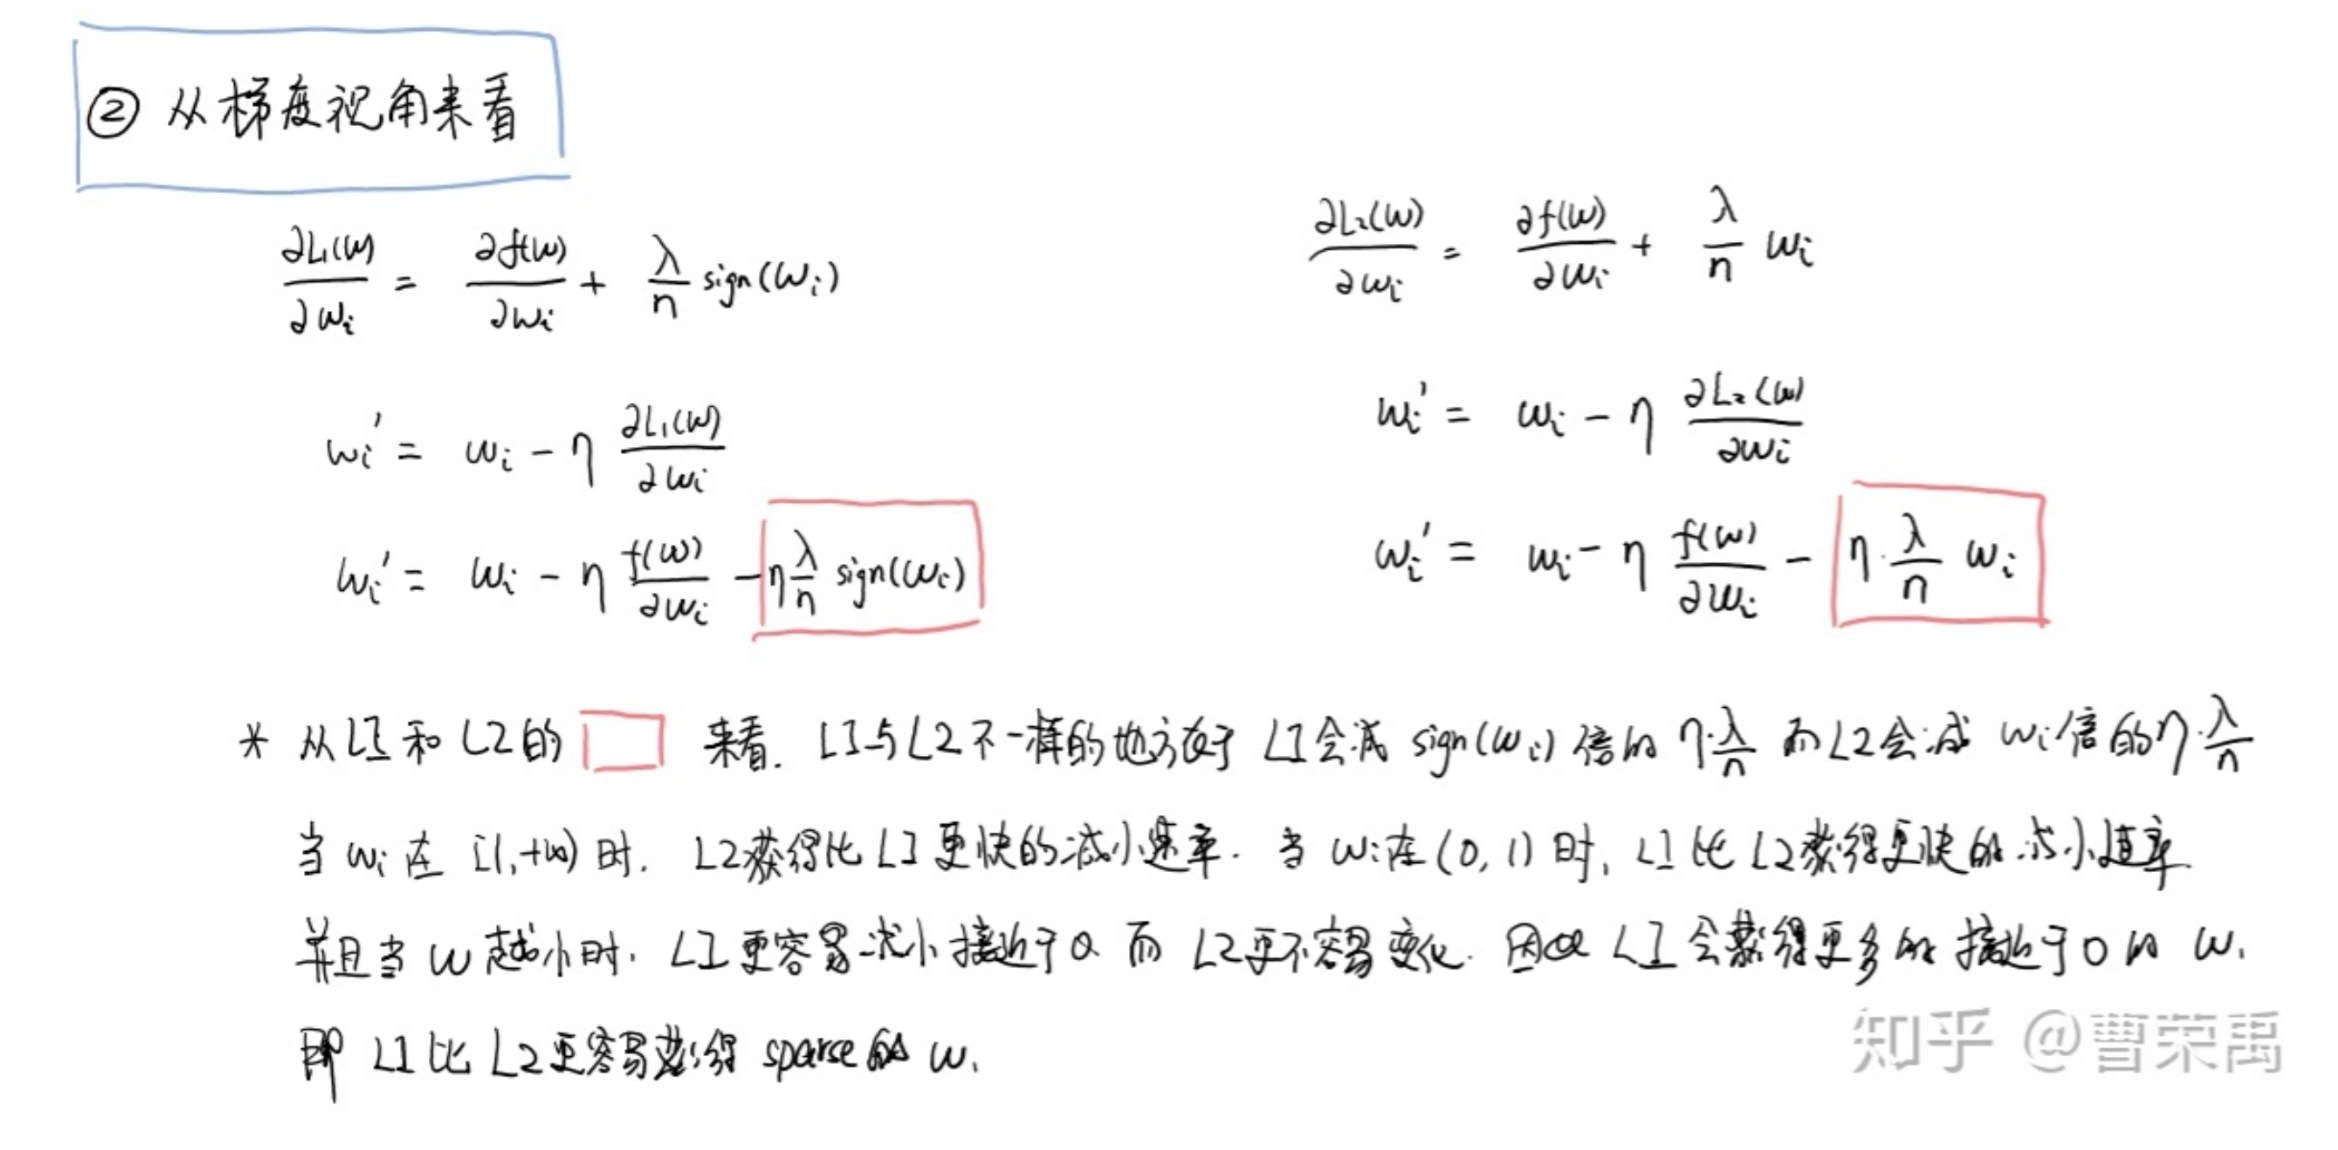 ② 从梯度视角来看
∂L₁(w)/∂wᵢ = ∂f(w)/∂wᵢ + λ/n sign(wᵢ)
wᵢ' = wᵢ - η ∂L₁(w)/∂wᵢ
wᵢ' = wᵢ - η f(w)/∂wᵢ - η λ/n sign(wᵢ)
∂L₂(w)/∂wᵢ = ∂f(w)/∂wᵢ + λ/n wᵢ
wᵢ' = wᵢ - η ∂L₂(w)/∂wᵢ
wᵢ' = wᵢ - η f(w)/∂wᵢ - η·λ/n wᵢ
* 从L1和L2的 来看. L1与L2不一样的地方在于 L1会减 sign(wᵢ) 倍的 η·λ/n 而L2会减 wᵢ倍的η·λ/n
当 wᵢ 在 [1,+∞) 时. L2获得比L1更快的减小速率. 当 wᵢ在(0,1)时, L1比L2获得更快的减小速率
并且当 w 越小时. L1更容易减小接近于0 而 L2更不容易变化. 因此 L1会获得更多的接近于0的 w.
即 L1比L2更容易获得 sparse的 w.
知乎 @曹荣禹